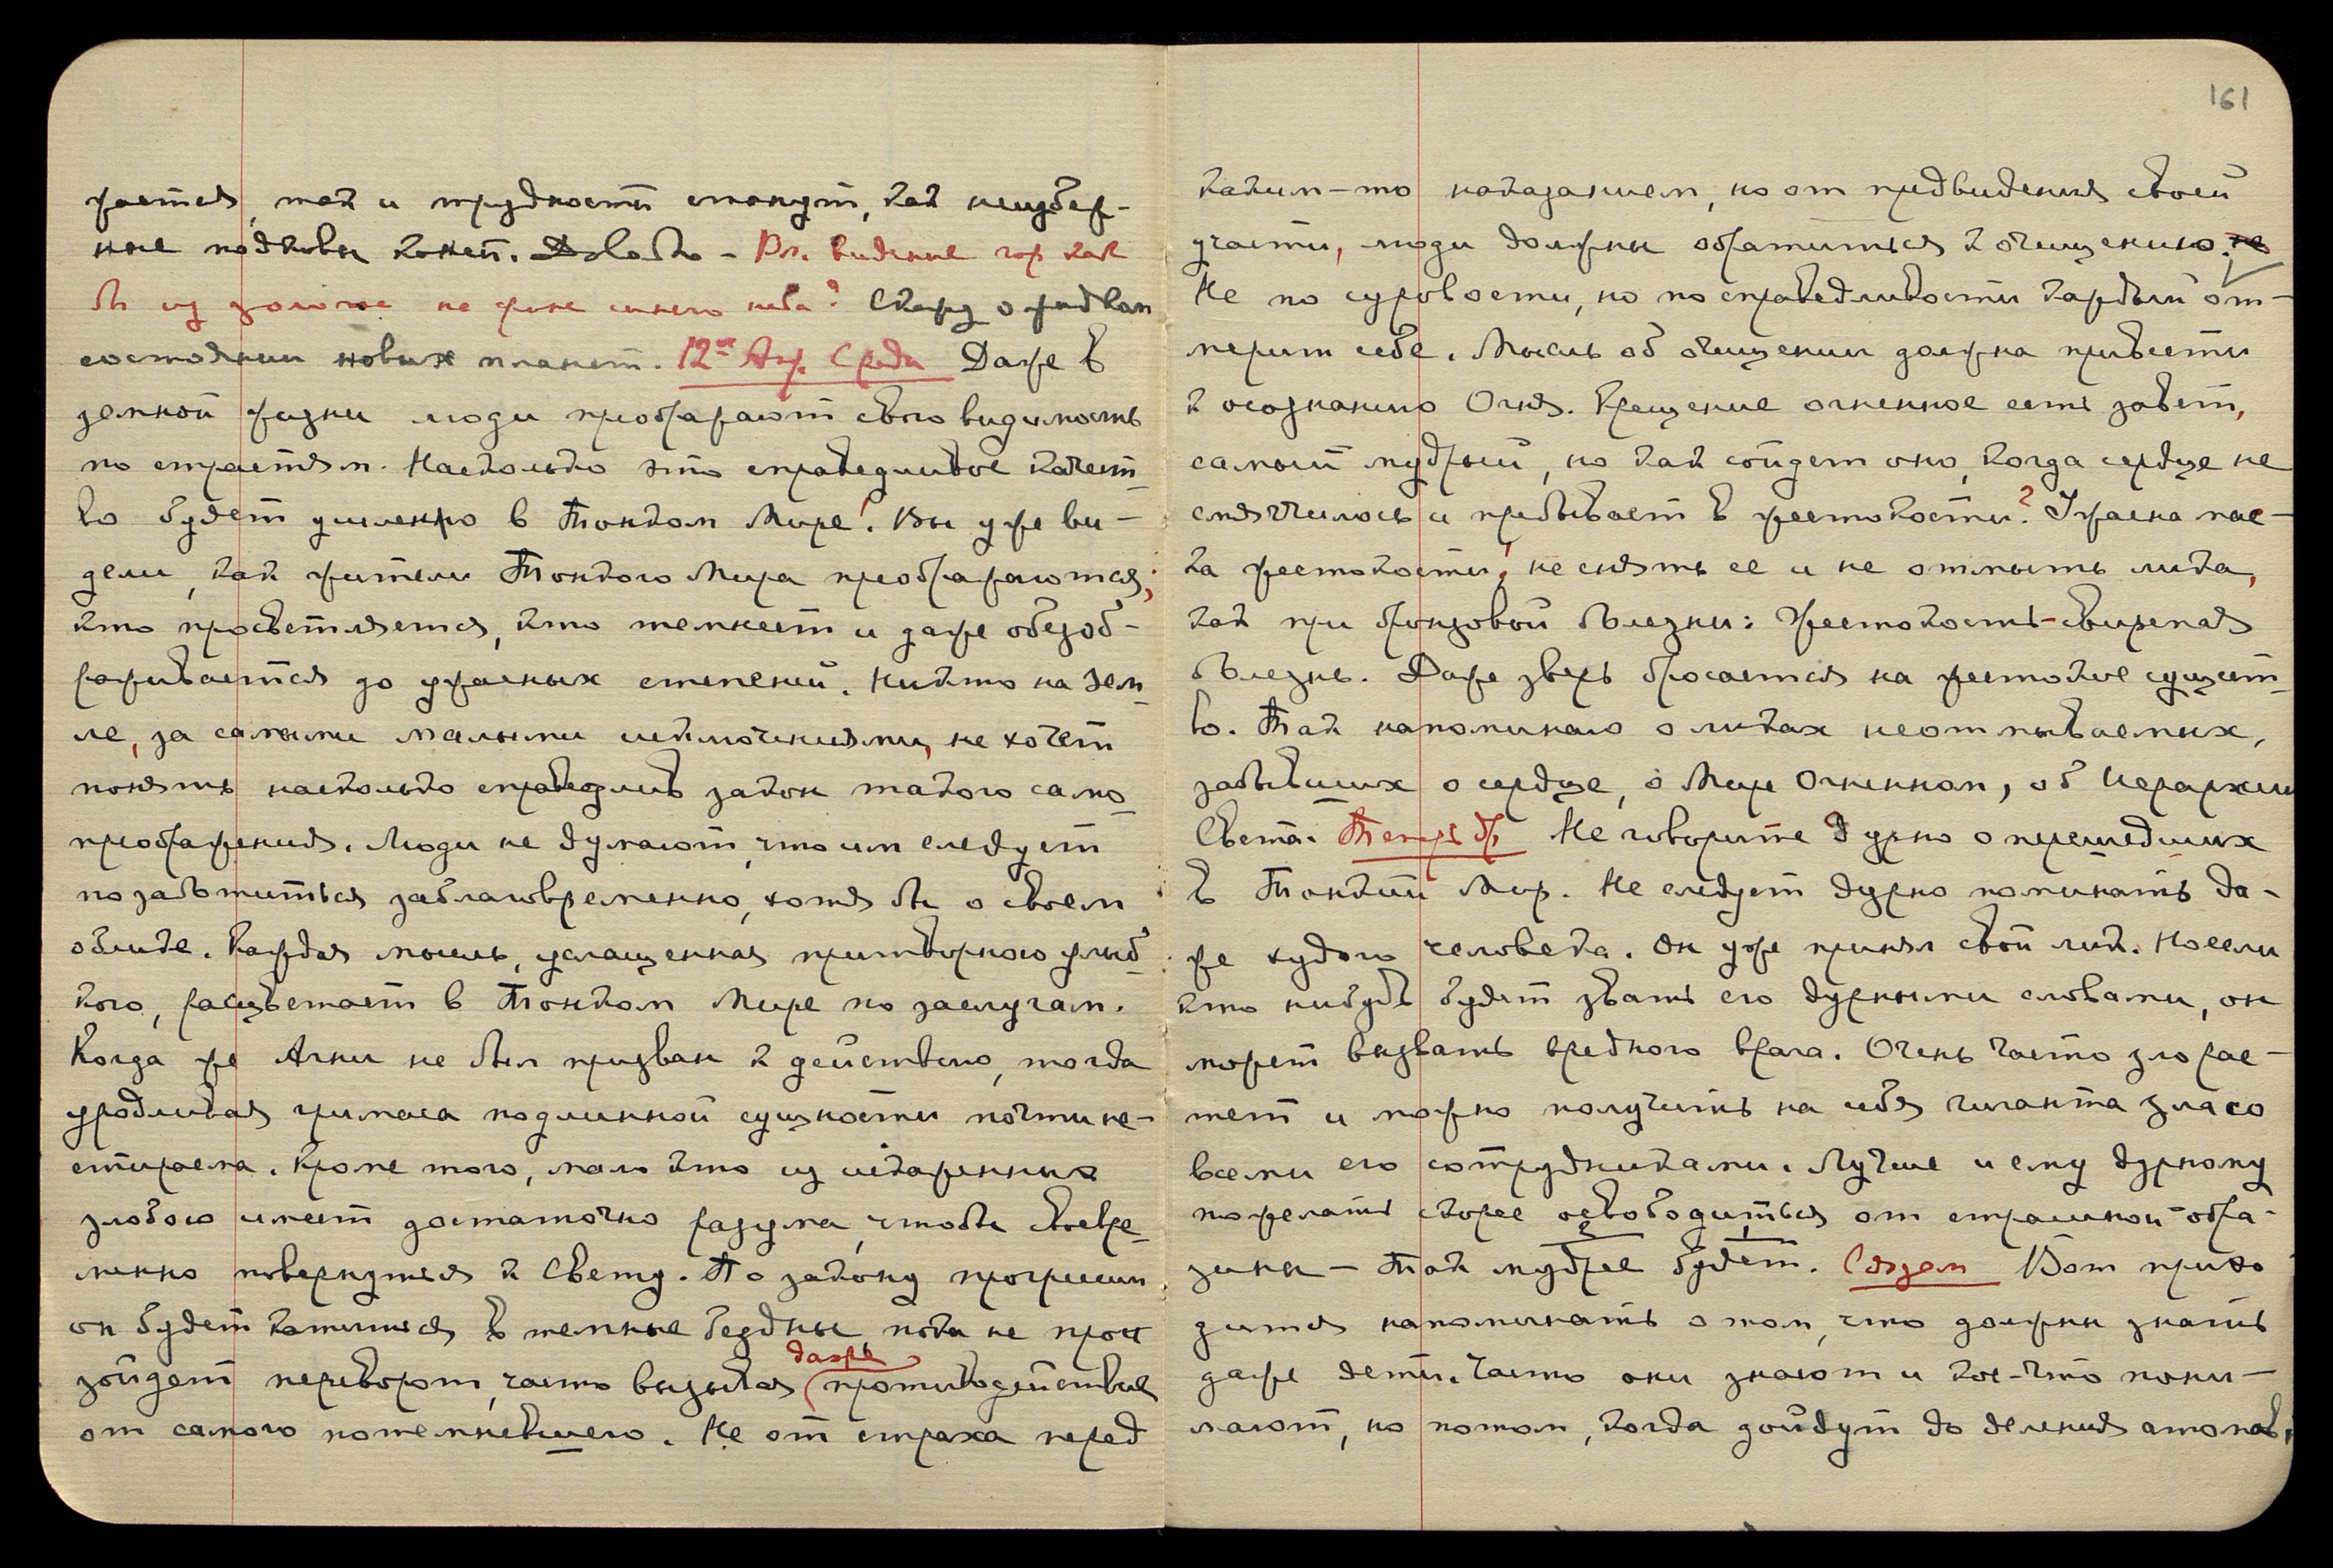 жается, так и трудности станут, как неизбеж-
ные подковы коней. Довольно - Вл. видение гор как
бы из золота на фоне синего неба? Скажу о редком
состоянии новых планет. 12ое Апр. Среда Даже в
земной жизни люди преображают свою видимость
по страстям. Насколько это справедливое качест-
во будет усилено в Тонком Мире! Вы уже ви-
дели, как жители Тонкого Мира преображаются;
кто просветляется, кто темнеет и даже обезоб-
раживается до ужасных степеней. Никто на зем-
ле, за самыми малыми исключениями, не хочет
понять насколько справедлив закон такого само-
преображения. Люди не думают, что им следует
позаботиться заблаговременно, хотя бы о своем
облике. Каждая мысль, услащенная притворною улыб-
кою, расцветает в Тонком Мире по заслугам.
Когда же Агни не был призван к действию, тогда
уродливая гримаса подлинной сущности почти не-
стираема. Кроме того, мало кто из искаженных
злобою имеет достаточно разума, чтобы своевре-
менно повернуться к Свету. По закону прогрессии
он будет катиться в темные бездны пока не прои
зойдет переворот, часто вызывая (даже) противодействие
от самого потемневшего. Не от страха перед
161
каким-то наказанием, но от предвидения своей
участи, люди должны обратиться к очищению.
Не по суровости, но по справедливости каждый от-
мерит себе. Мысль об очищении должна привести
к осознанию Огня. Крещение огненное есть завет,
самый мудрый, но как сойдет оно, когда сердце не
смягчилось и пребывает в жестокости? Ужасна мас-
ка жестокости! не снять ее и не отмыть лика,
как при бронзовой болезни: Жестокость-свирепая
болезнь. Даже зверь бросается на жестокое сущест-
во. Так напоминаю о ликах неотмываемых,
забывших о сердце, о Мире Огненном, об Иерархии
Света. Теперь др. Не говорите дурно о перешедших
в Тонкий Мир. Не следует дурно поминать да-
же худого человека. Он уже принял свой лик. Но если
кто нибудь будет звать его дурными словами, он
может вызвать вредного врага. Очень часто зло рас-
тет и можно получить на себя гиганта зла со
всеми его сотрудниками. Лучше и ему дурному
пожелать скорее освободиться от страшной обра-
зины - Так мудрее будет. Создам Вот прихо
дится напоминать о том, что должны знать
даже дети. Часто они знают и кое-что пони-
мают, но потом, когда дойдут до деления атомов,